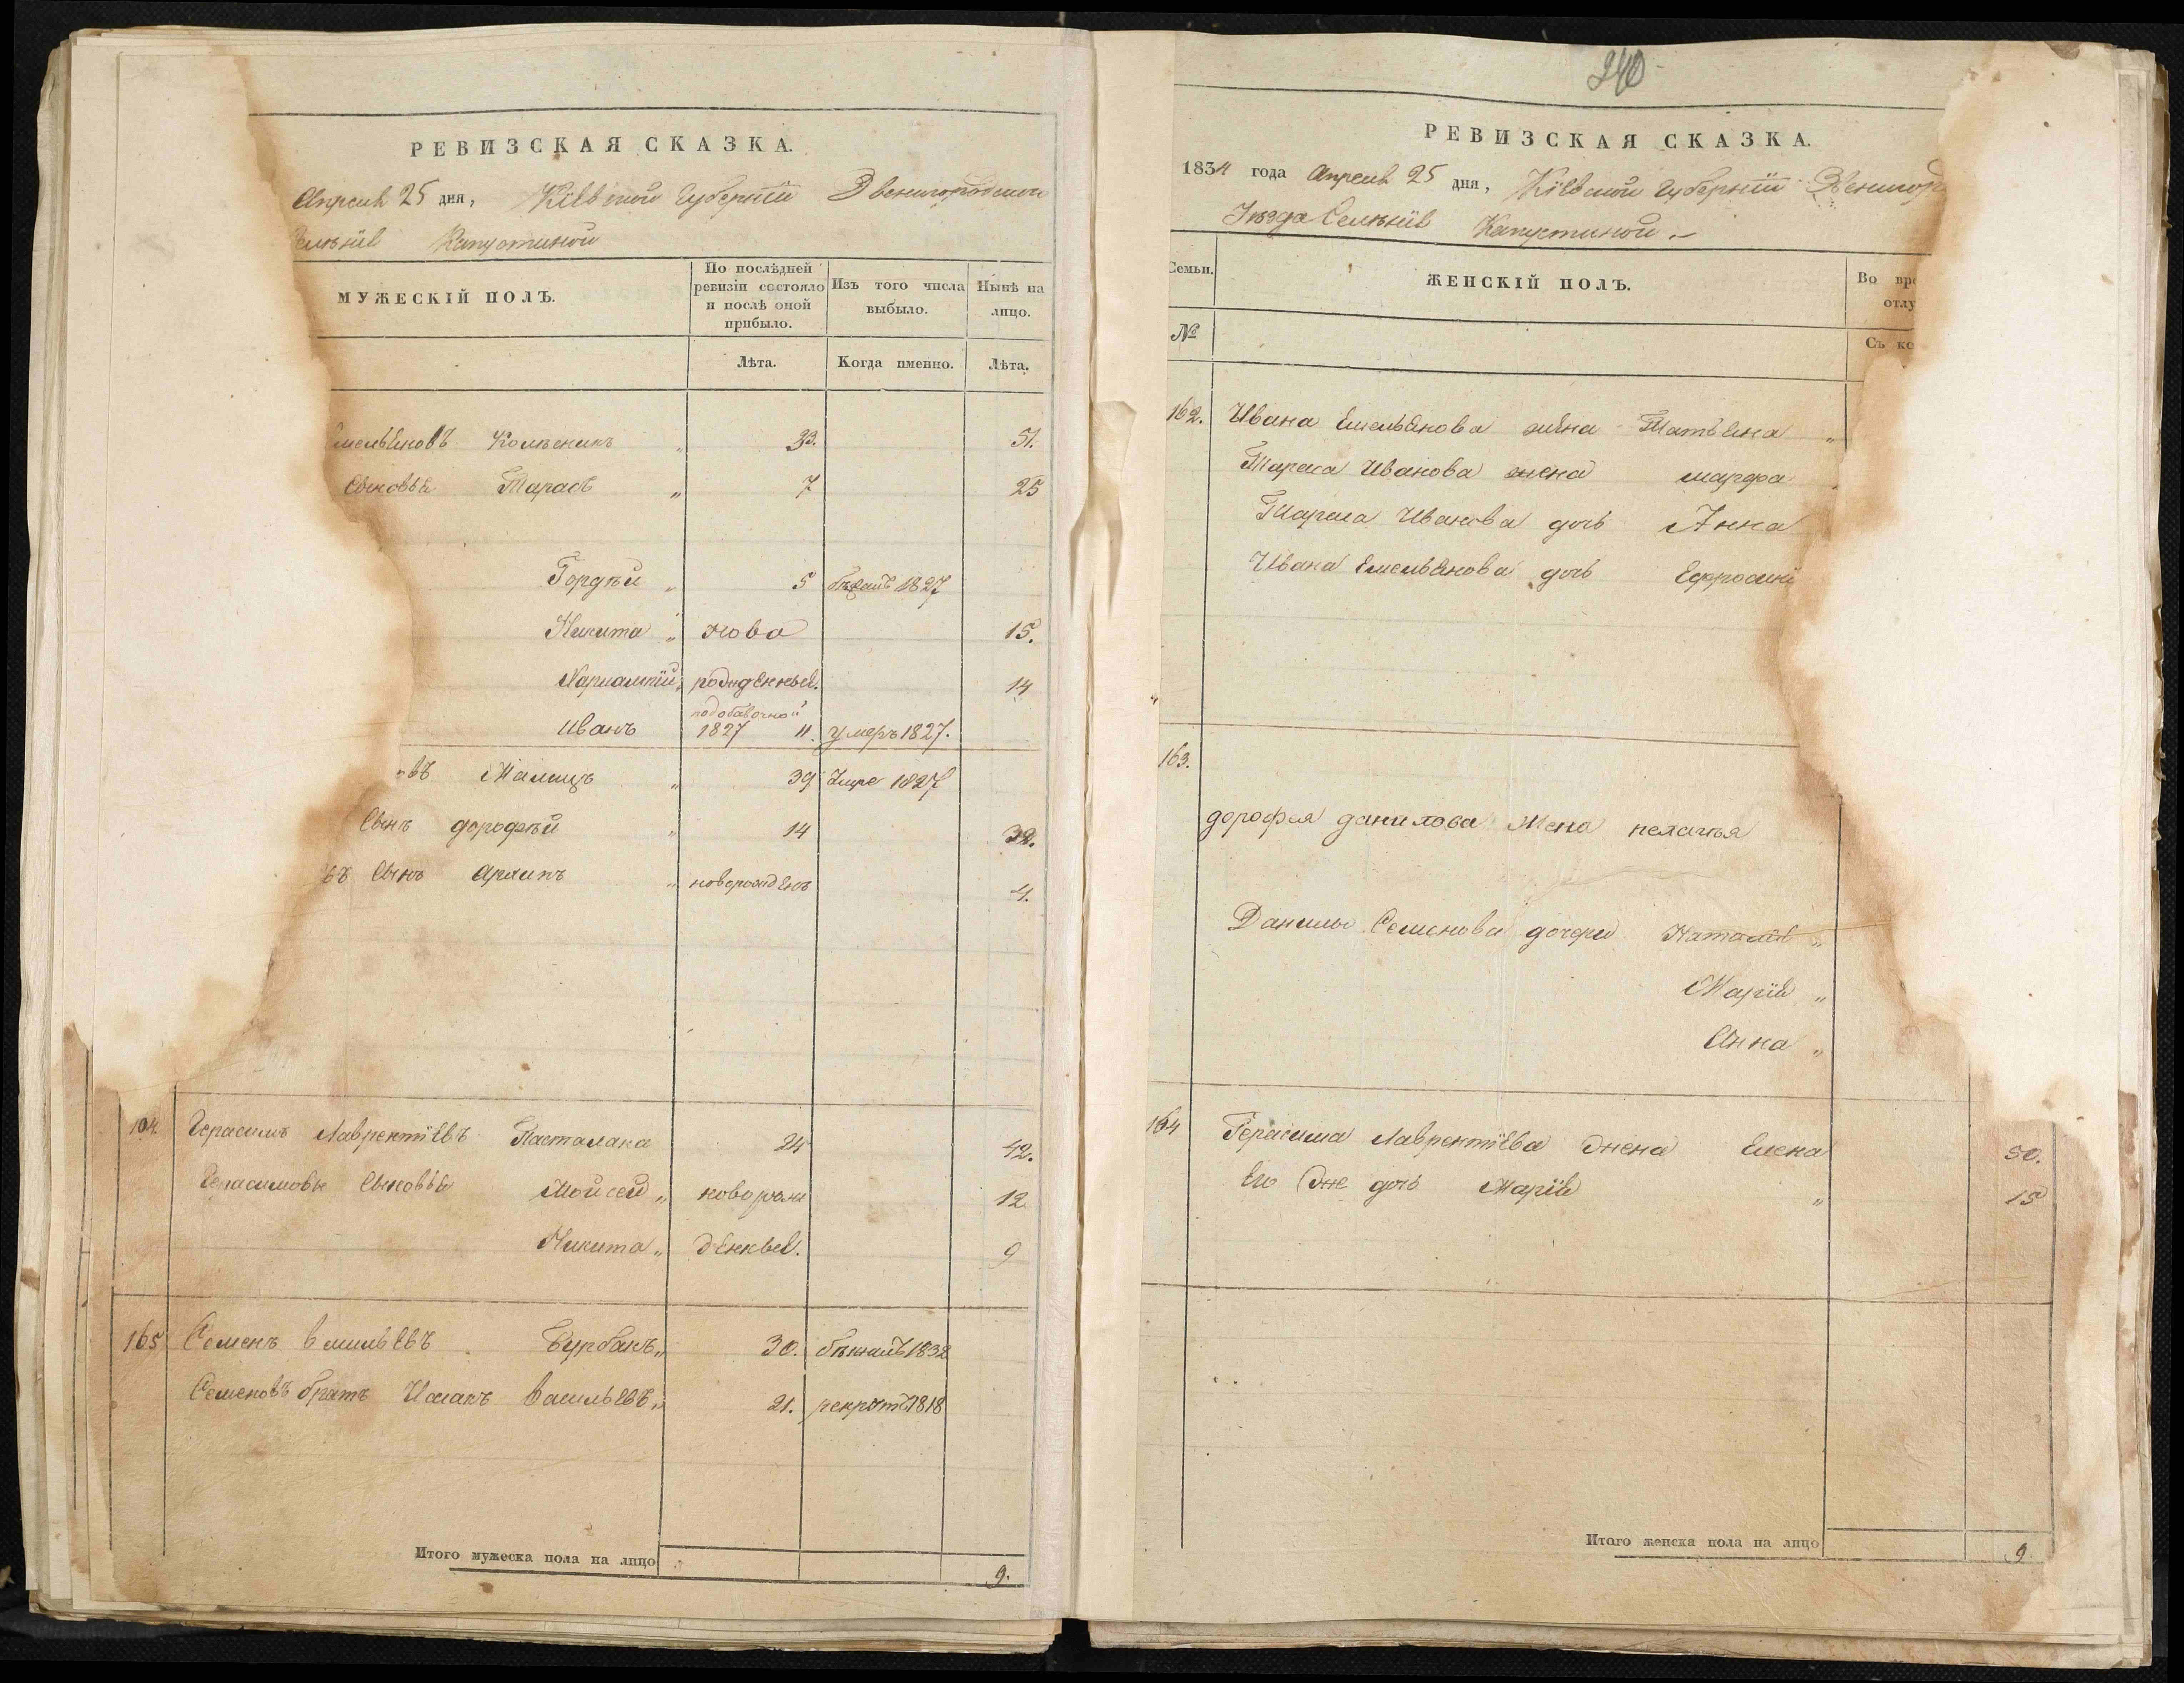 РЕВИЗСКАЯ СКАЗКА.
Апреля 25 дня, Кіевской Губерніи Звенигородской
Капустиной
МУЖЕСКІЙ ПОЛЪ.
По послѣдней ревизіи состояло и послѣ оной прибыло.
Изъ того числа выбыло.
Нынѣ на лицо.
Лѣта.
Когда именно.
Лѣта.
33. 51.
Сыновья Тарасъ „ 7 25
Гордѣй „ 5 бѣжалъ 1827
Никита „ ново 15.
Харлампій „ рожденные. 14
Иванъ подобавочной 1827 11. умеръ 1827.
въ „ 39 Умре 1827
Сынъ дорофѣй „ 14 32.
въ Сынъ Архипъ „ новорожденъ 4.
164. Герасимъ Лаврентіевъ Пастолака 24 42.
Герасимовы Сыновья Мойсей „ новорож 12
Никита „ денные. 9
165 Семенъ Васильевъ Бурбакъ „ 30. бѣжалъ 1832
Семеновъ братъ Исакъ Васильевъ „ 21. рекрутъ 1818
Итого мужеска пола на лицо 9.
240
РЕВИЗСКАЯ СКАЗКА.
1834 года Апреля 25 дня, Кіевской Губерніи Звенигор
Уѣзда Селенія Капустиной.
Семьи.
ЖЕНСКІЙ ПОЛЪ.
Во вре
отлу
№
Съ ко
162. Ивана Емельянова жена Татьяна „
Тараса Иванова жена марфа
Тараса Иванова дочь Анна
Ивана Емельянова дочь Ефросині
163.
дорофея данилова Жена пелагья
Данилы Семенова дочери Наталія „
Марія „
Анна „
164 Герасима Лаврентіева Жена Елена 30.
Его Же дочь Марія „ 15
Итого женска пола на лицо 9.